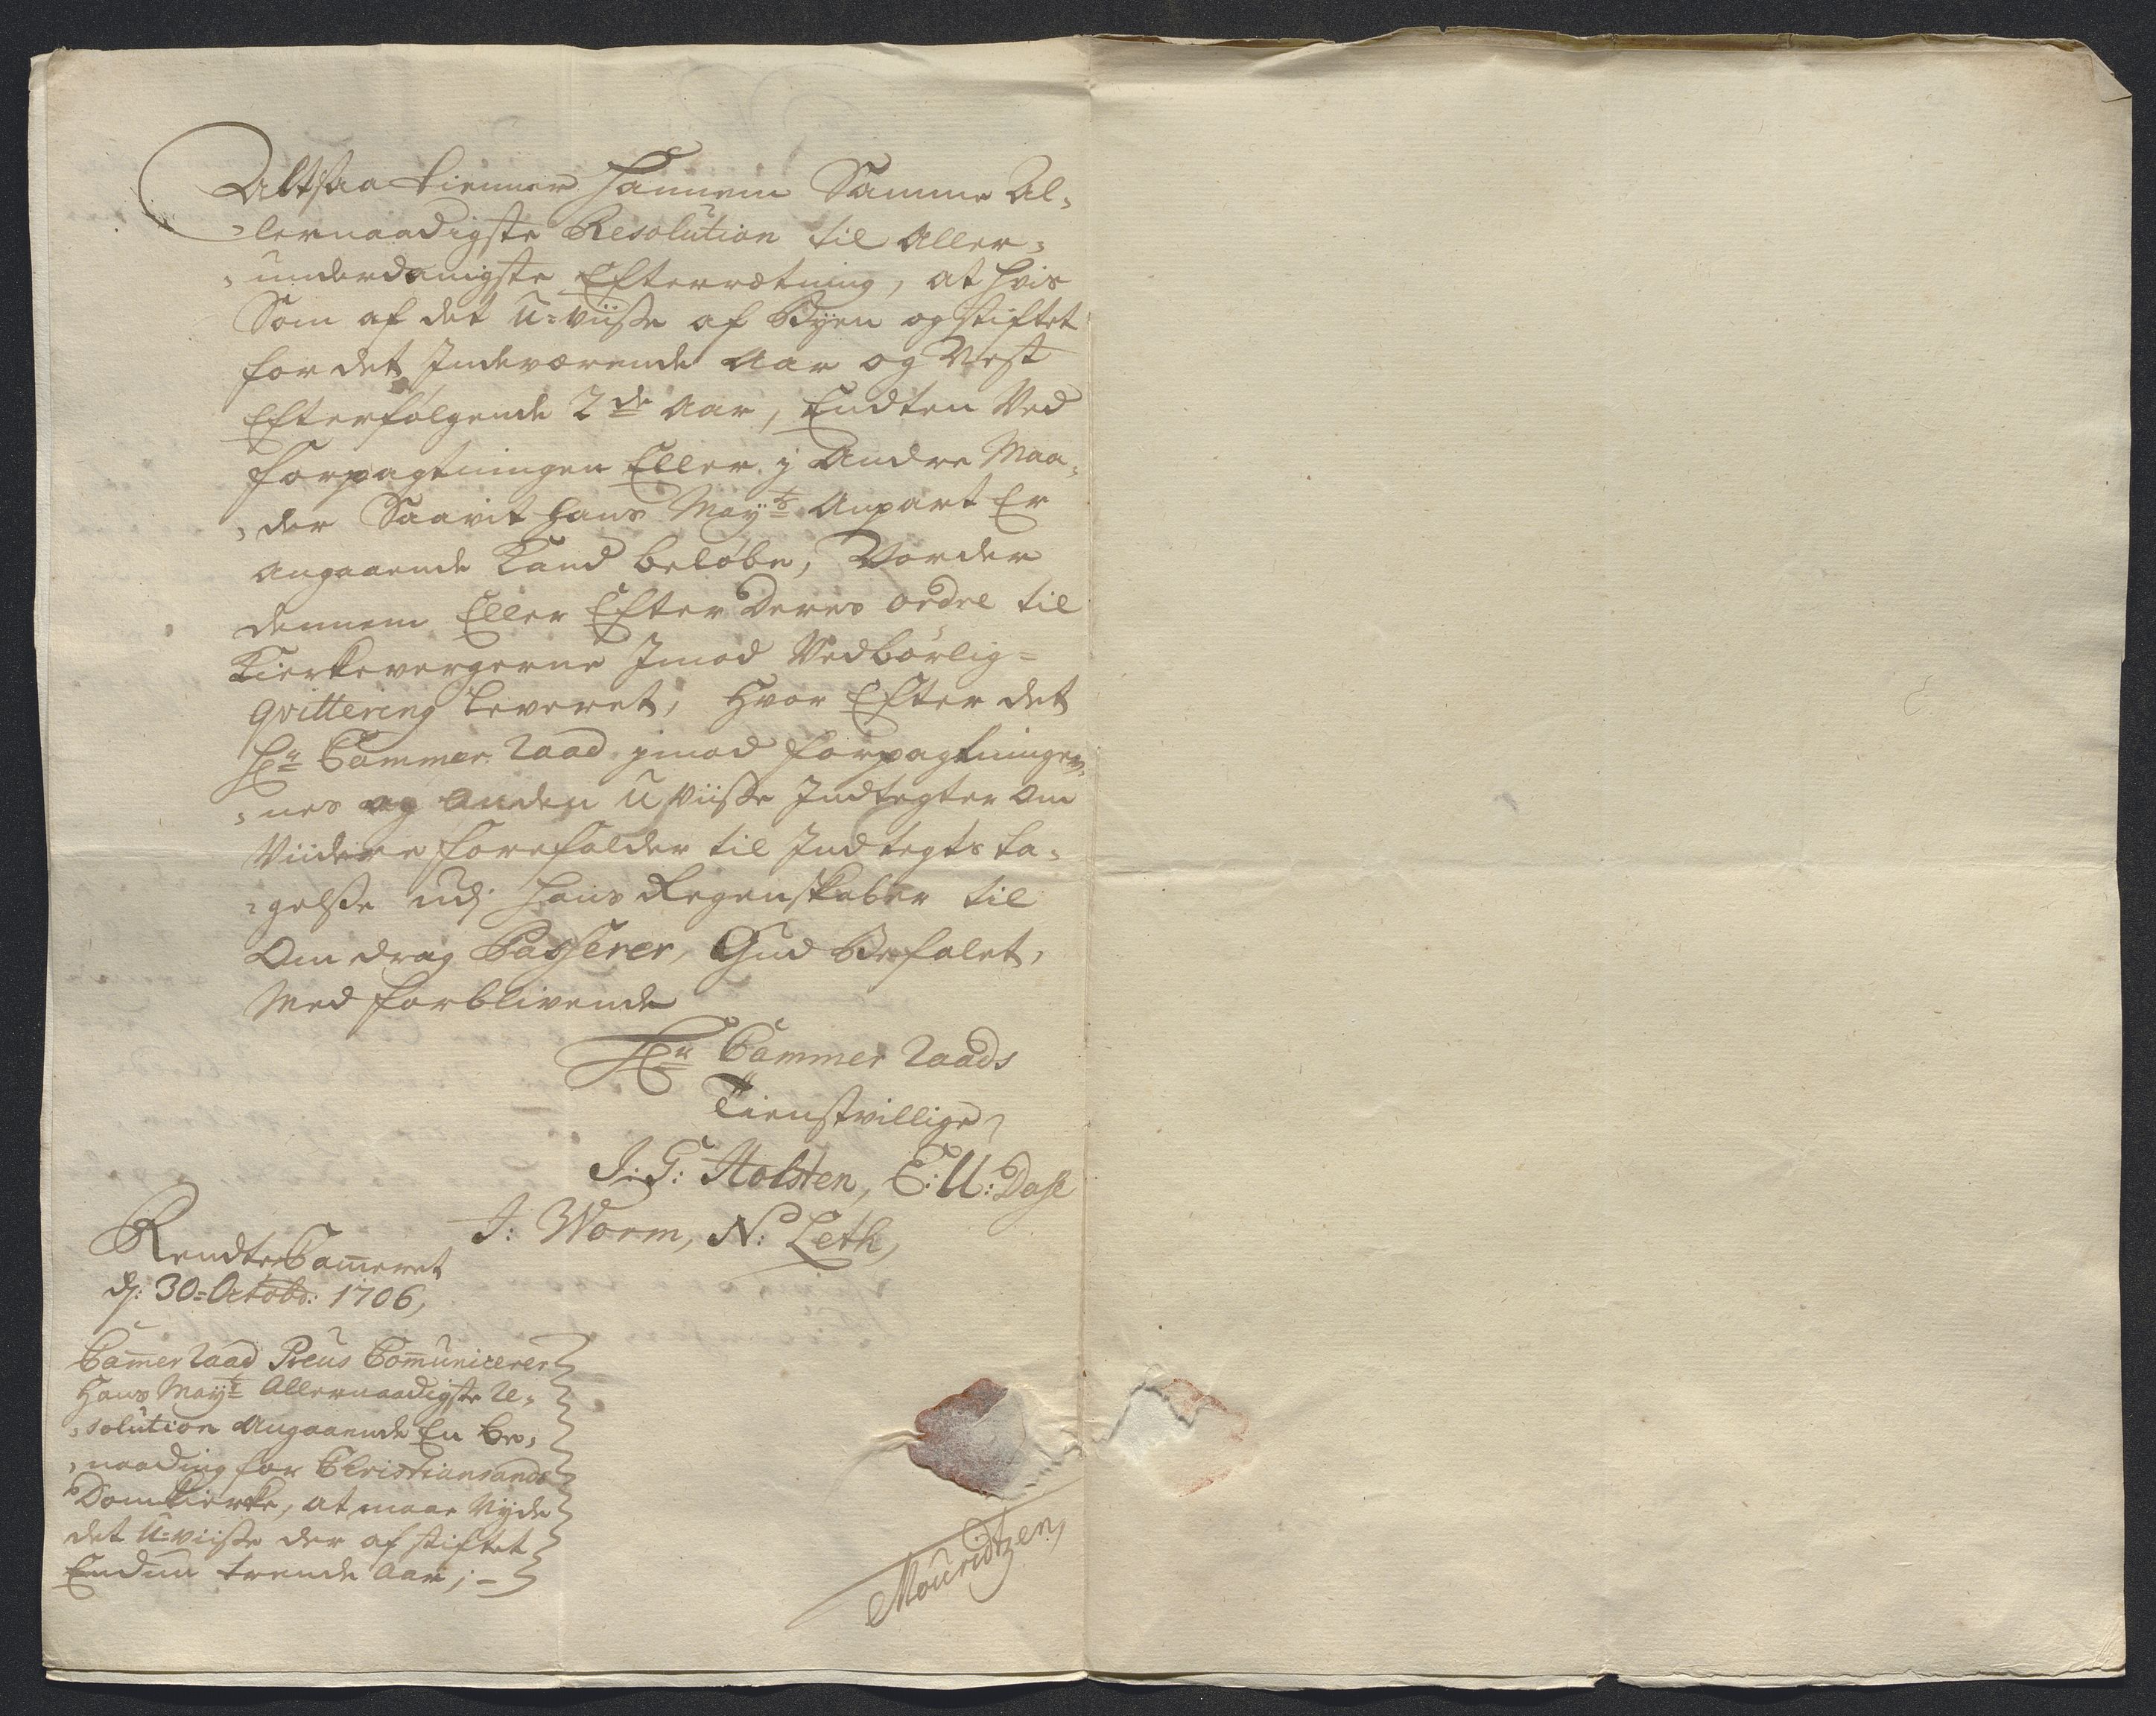 Altsaa tienner hannem Samme Al-
-lernaadigste Resolution til Aller-
-underdanigste Efterretning, at hvis
Som af det U-viisse af Byen og stiftet
for det Indeværende Aar og Nest
Efterfølgende 2de Aar, Endten Ved
forpagtningen Eller j Andre Maa-
-der Saavit hans Mayts Anpart Er
angaaende Kand beløbe, Vorder
dennem Eller Efter deres ordre til
Kierkevergerne Imod Vedbørlig-
qvittering leveret, Hvor Efter det
Hr Cammer Raad jmod forpagtningen-
-nes og anden U viisse Indtegter Om
Viidere foreholder til Indtegts ta-
-gelsse udj hans Regenskaber til
Omdrag Passerer, Gud Befalet,
Med forblivende
Hr Cammer Raads
Tienstvillige
J: G: Holsten, C: U: Dose
J: Worm, N: Leth,
RendteCam̄eret
dj: 30-Octobr: 1706,
Cam̄erraad Preus Com̄unicerer
Hans Mayts Allernaadigste Re-
-solution Angaaende En be-
-naading for Christiansands
Domkierke, at maae Nyde
det U-viisse der af stiftet
Endnu trende Aar; -
Mouridtzen,